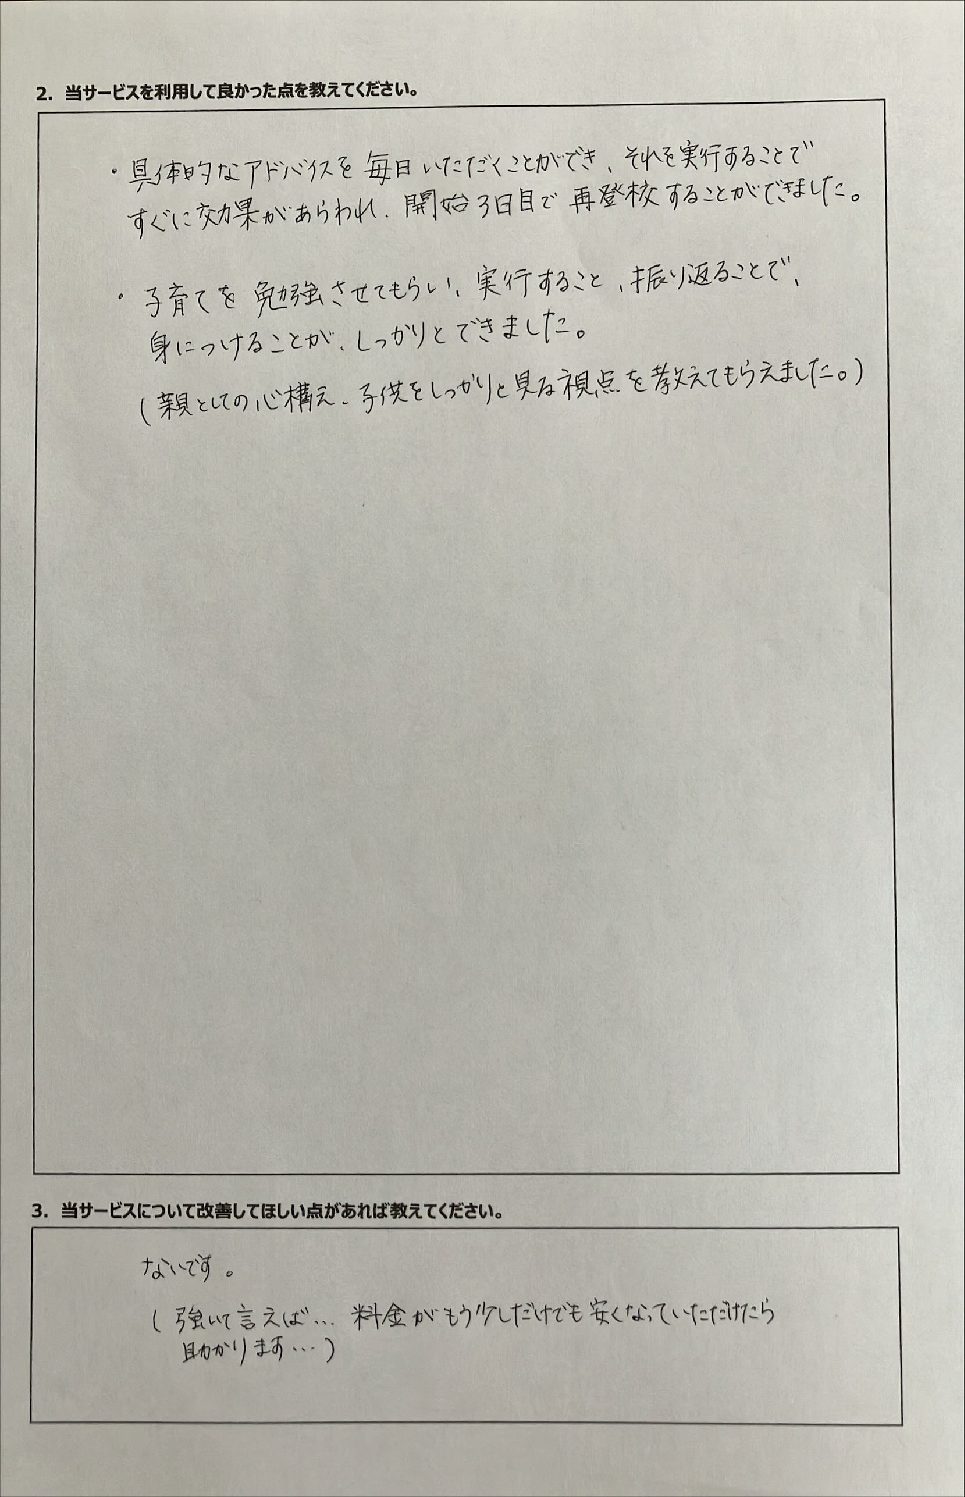 2. 当サービスを利用して良かった点を教えてください。
・具体的なアドバイスを毎日いただくことができ、それを実行することで
すぐに効果があらわれ、開始3日目で再登校することができました。
・子育てを勉強させてもらい、実行すること、振り返ることで、
身につけることが、しっかりとできました。
(親としての心構え、子供をしっかりと見る視点を教えてもらえました。)
3. 当サービスについて改善してほしい点があれば教えてください。
ないです。
(強いて言えば… 料金がもう少しだけでも安くなっていただけたら
助かります…)